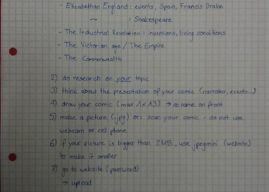 - Elizabethan England: events, Spain, Francis Drake
~ : Shakespeare
- The Industrial Revolution: inventions, living conditions
- The Victorian age / The Empire
- The Commonwealth
2) do research on your topic
3) think about the presentation of your comic (narrator, events...)
4) draw your comic (max 1 x A3) → name on front
5) make a picture (.jpg) or scan your comic - do not use
webcam or cell phone
6) if your picture is bigger than 2MB, use jpegmini (website)
to make it smaller
7) go to website (password)
→ upload